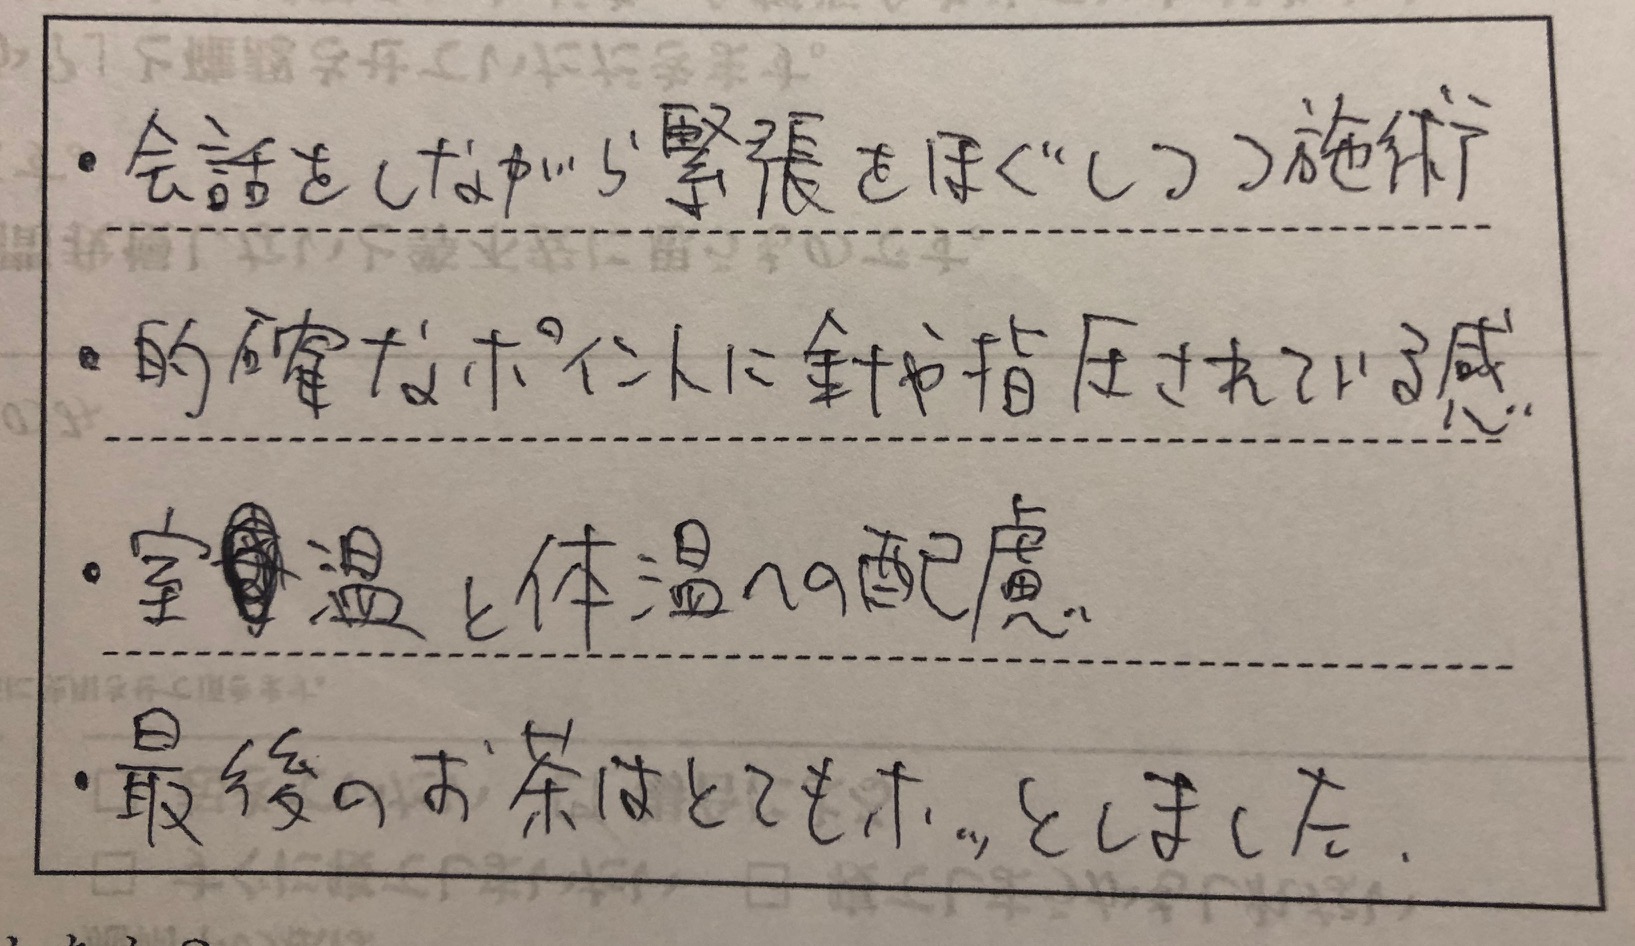 ・会話をしながら緊張をほぐしつつ施術
・的確なポイントに針や指圧されている感
・室温と体温への配慮
・最後のお茶はとてもホッとしました.